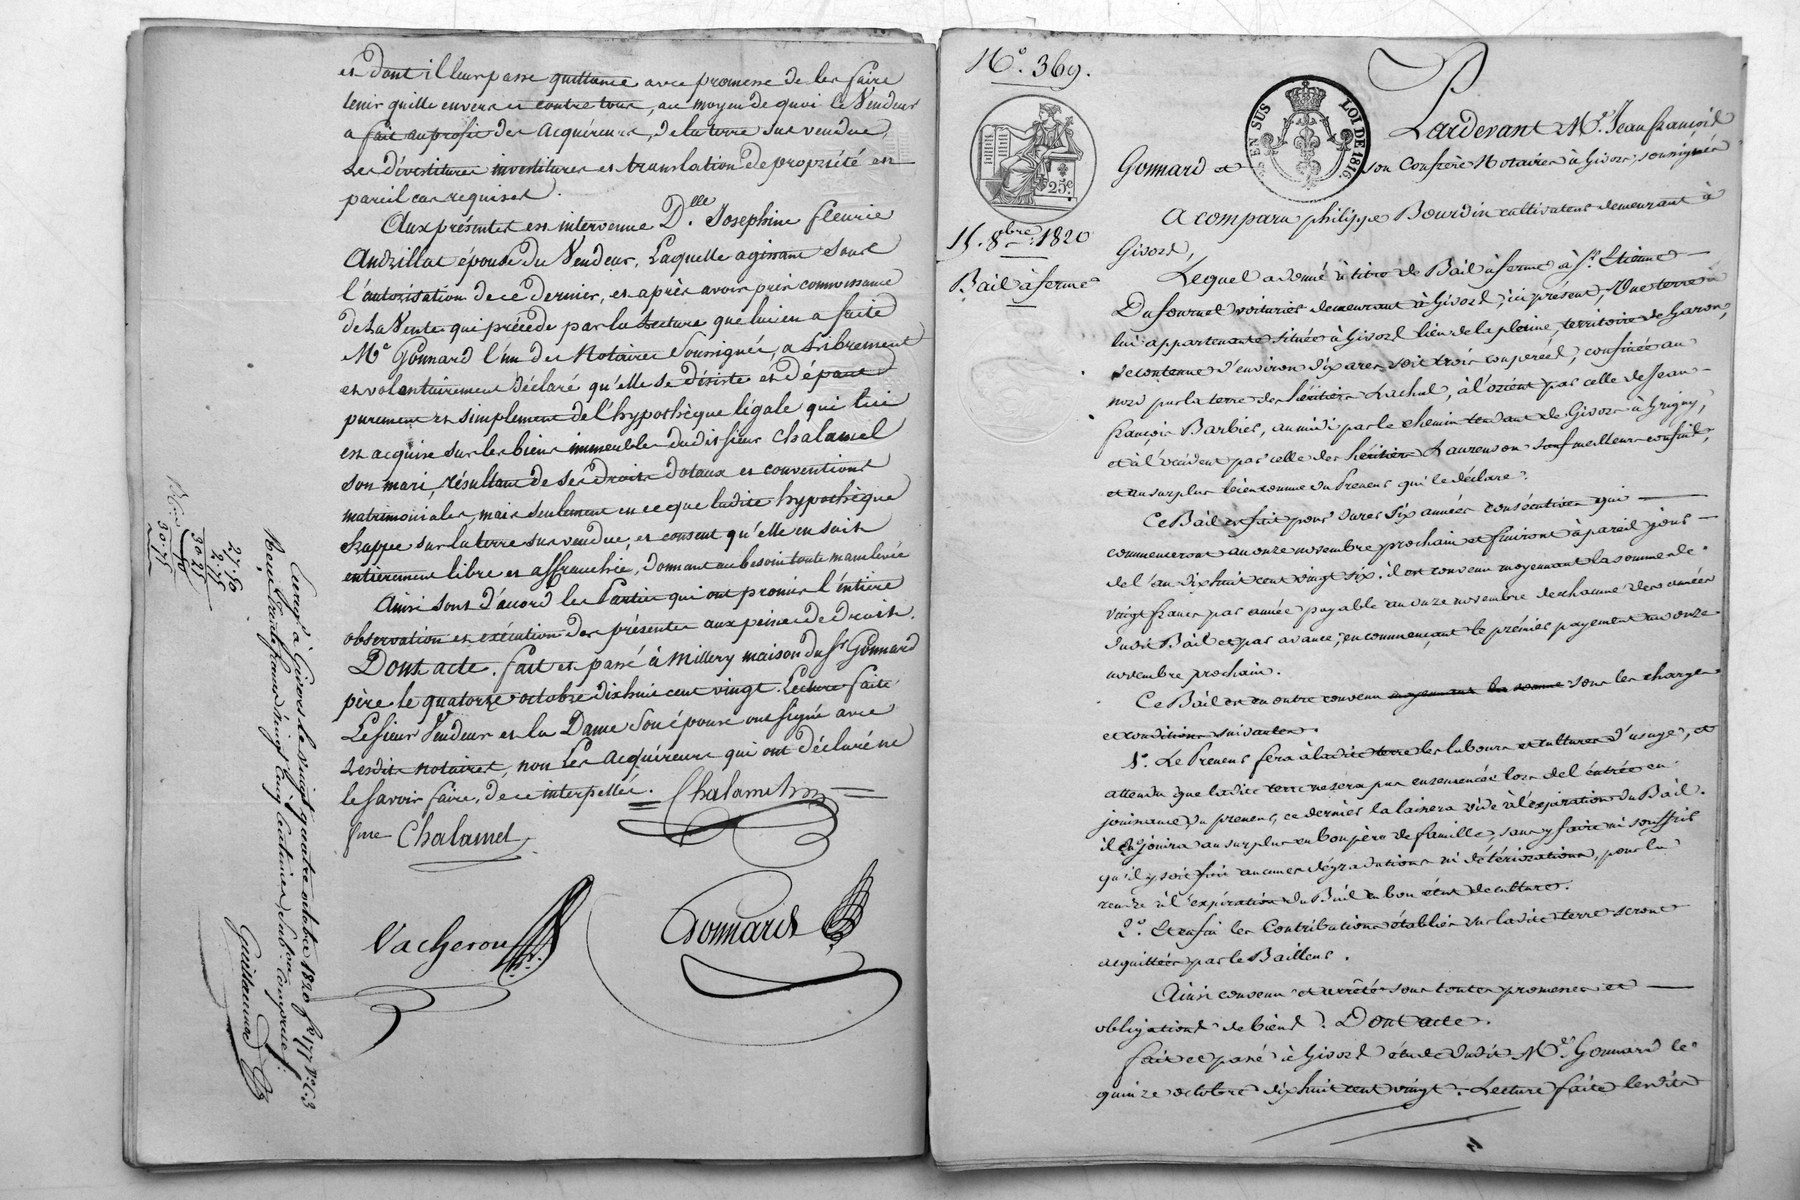 et dont il leur passe quittance avec promesse de les faire
tenir quitte envers et contre tous, au moyen de quoi le Vendeur
a fait au profit des acquéreurs, de la terre sus vendue,
les dévestitures investitures et translation de propriété en
pareil cas requises.
Aux présentes est intervenue D.lle Josephine fleurie
Andrillat épouse du Vendeur, Laquelle agissant sous
l'autorisation de ce dernier, et après avoir pris connoissance
de la Vente qui précède par la Lecture que lui en a faite
Me Gonnard l'un des Notaires Soussignés, a Librement
et volontairement déclaré qu'elle se désiste et départ
purement et simplement de l'hypothèque légale qui lui
est acquise sur les biens immeubles dudit sieur Chalamel
son mari, résultant de ses droits dotaux et conventions
matrimoniales, mais seulement en ce que ladite hypothèque
frappe sur la terre sus vendue, et consent qu'elle en soit
entièrement libre et affranchie, donnant au besoin toute mainlevée
Ainsi sont d'accord les Parties qui ont promis l'entière
observation et exécution des présentes aux peines de droit.
Dont acte. fait et passé à Millery maison du Sr Gonnard
père le quatorze octobre dix huit cent vingt. Lecture faite
Le sieur Vendeur et la Dame son épouse ont signé avec
Lesdits notaires, non Les acquéreurs qui ont déclaré ne
le savoir faire, de ce interpellés.
Chalamel
fme Chalamel
Vacheron
Gonnard
Enregé à Givors le vingt quatre octobre 1820 fo 177 Vo C. 3
Reçu trente francs vingt cinq centimes, subon compris.
Guillaume
27.50
2.75
30.25
30.75
No. 369.
EN SUS
LOI DE 1816.
25c
15. 8bre 1820
Bail à ferme
Pardevant Me Jean françois
Gonnard et son Confrère Notaires à Givors, soussignés
A comparu philippe Bourdin cultivateur demeurant à
Givors,
Lequel a donné à titre de Bail à ferme à St. Etienne
Dufournel voiturier demeurant à Givors, ici présent, Une terre à
lui appartenante située à Givors lieu de la pleine, territoire de Garon,
de contenue d'environ dix ares soit trois couperées, confinée au
nord par la terre des héritiers Lachal, à l'orient par celle de Jean
françois Barbier, au midi par le chemin tendant de Givors à Grigny,
et à l'occident par celle des héritiers Laurenson sauf meilleurs confins,
et au surplus bien connue du Preneur qui le déclare.
Ce Bail est fait pour dures six années consécutives qui
commenceront au onze novembre prochain et finiront à pareil jour
de l'an dix huit cent vingt six. il est convenu moyennant la somme de
vingt francs par année payable au onze novembre de chacune des années
dudit Bail et par avance, en commençant le premier payement au onze
novembre prochain.
Ce Bail est en outre convenu moyennant la somme sous les charges
et conditions suivantes.
1o. Le Preneur fera à ladite terre les labours et cultures d'usage, et
attendu que ladite terre ne sera pas ensemencée lors de l'entrée en
jouissance du preneur, ce dernier la laissera vide à l'expiration du Bail.
il en jouira au surplus en bon père de famille, sans y faire ni souffrir
qu'il y soit fait aucunes dégradations ni détériorations, pour la
rendre à l'expiration du Bail en bon état de culture.
2o. Et enfin les Contributions établies sur ladite terre seront
acquittées par le Bailleur.
Ainsi convenu et arrêté sous toutes promesses et
obligations de biens. Dont acte.
fait et passé à Givors étude dudit Me. Gonnard le
quinze octobre dix huit cent vingt. Lecture faite lesdits